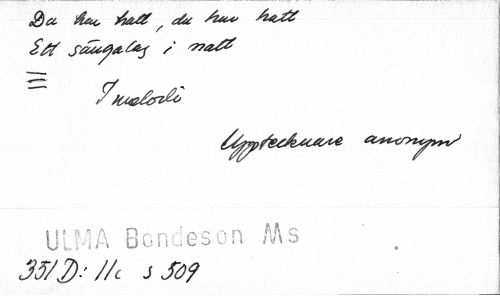 Du har hatt, du har hatt
Ett sängalag i natt
I melodi
Upptecknare anonym
ULMA Bondeson Ms
351 D: 11c s 509